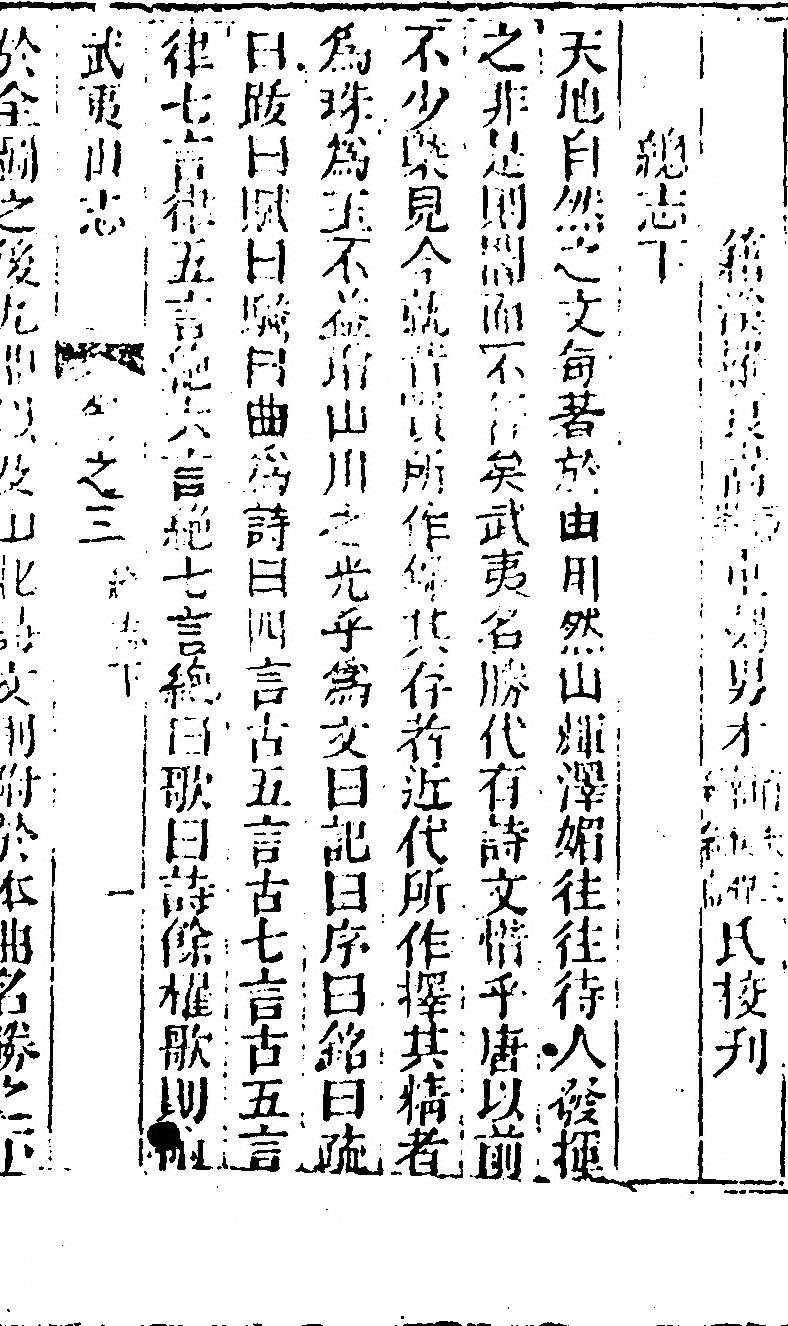 籍溪羅良嵩 男才 氏校刊
總志下
天地自然之文每著於由用然山輝澤媚往往待人發揮
之非是則闇而不章矣武夷名勝代有詩文惜乎唐以前
不少槩見今執昔賢所作 其存者近代所作擇其精者
為珠為玉不益增山川之光乎為文曰記曰序曰銘曰疏
曰跋曰賦曰騷曰曲為詩曰四言古五言古七言古五言
律七言律五言絶六言絶七言絶曰歌曰詩餘櫂歌則
武夷山志 之三 總志下 一
於全圖之後九曲以及山北詩文則附於本曲名勝之下